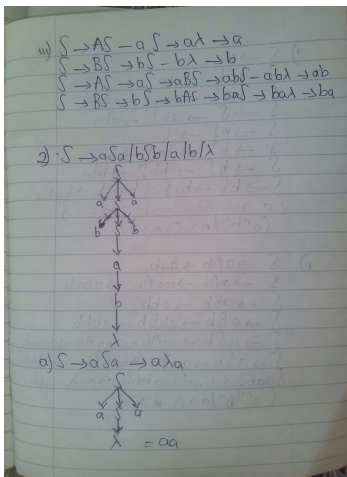 iii) S → AS – aS → aλ → a
S → BS → bS – bλ → b
S → AS → aS → aBS → abS – abλ → ab
S → BS → bS → bAS → baS → baλ → ba
2) S → aSa/bSb/a/b/λ
S
a S a
b S b
a
b
λ
a) S → aSa → aλa
S
a S a
λ = aa